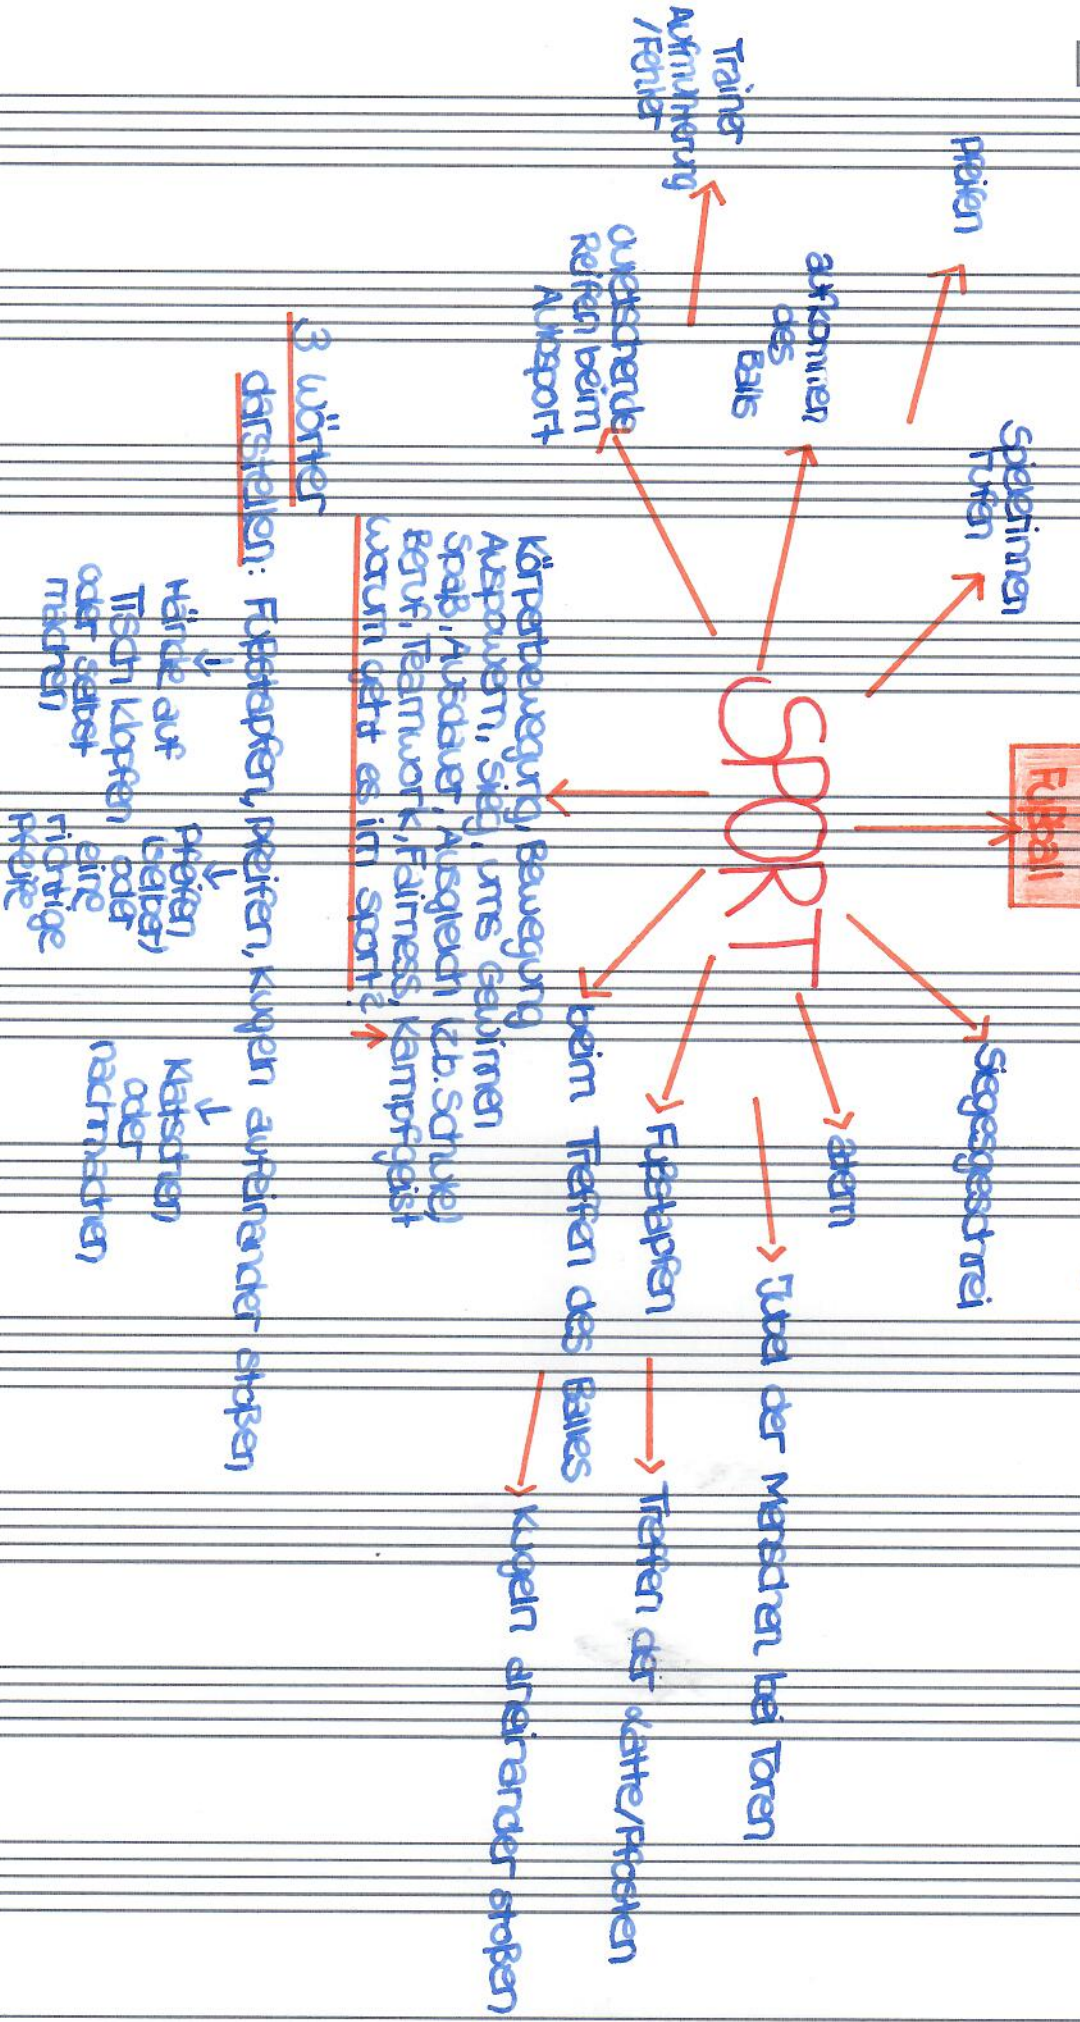 Fußball
Spielerinnen
rufen
pfeifen
Siegesgeschrei
aufkommen
des
Balls
SPORT
atem
Jubel der Menschen bei Toren
Trainer
Aufmunterung
/Fehler
quietschende
Reifen beim
Autosport
Fußstapfen
Treffen der Latte/Pfosten
beim Treffen des Balles
Kugeln aneinander stoßen
Körperbewegung, Bewegung
Auspowern, Sieg, ums Gewinnen
Spaß, Ausdauer, Ausgleich (z.b. Schule)
Beruf, Teamwork, Fairness, Kampfgeist
Warum geht es im Sport?
3 Wörter
darstellen: Fußstapfen, pfeifen, Kugeln aufeinander stoßen
Hände auf
Tisch klopfen
oder selbst
machen
pfeifen
(selber)
oder
eine
richtige
pfeife
Klatschen
oder
nachmachen